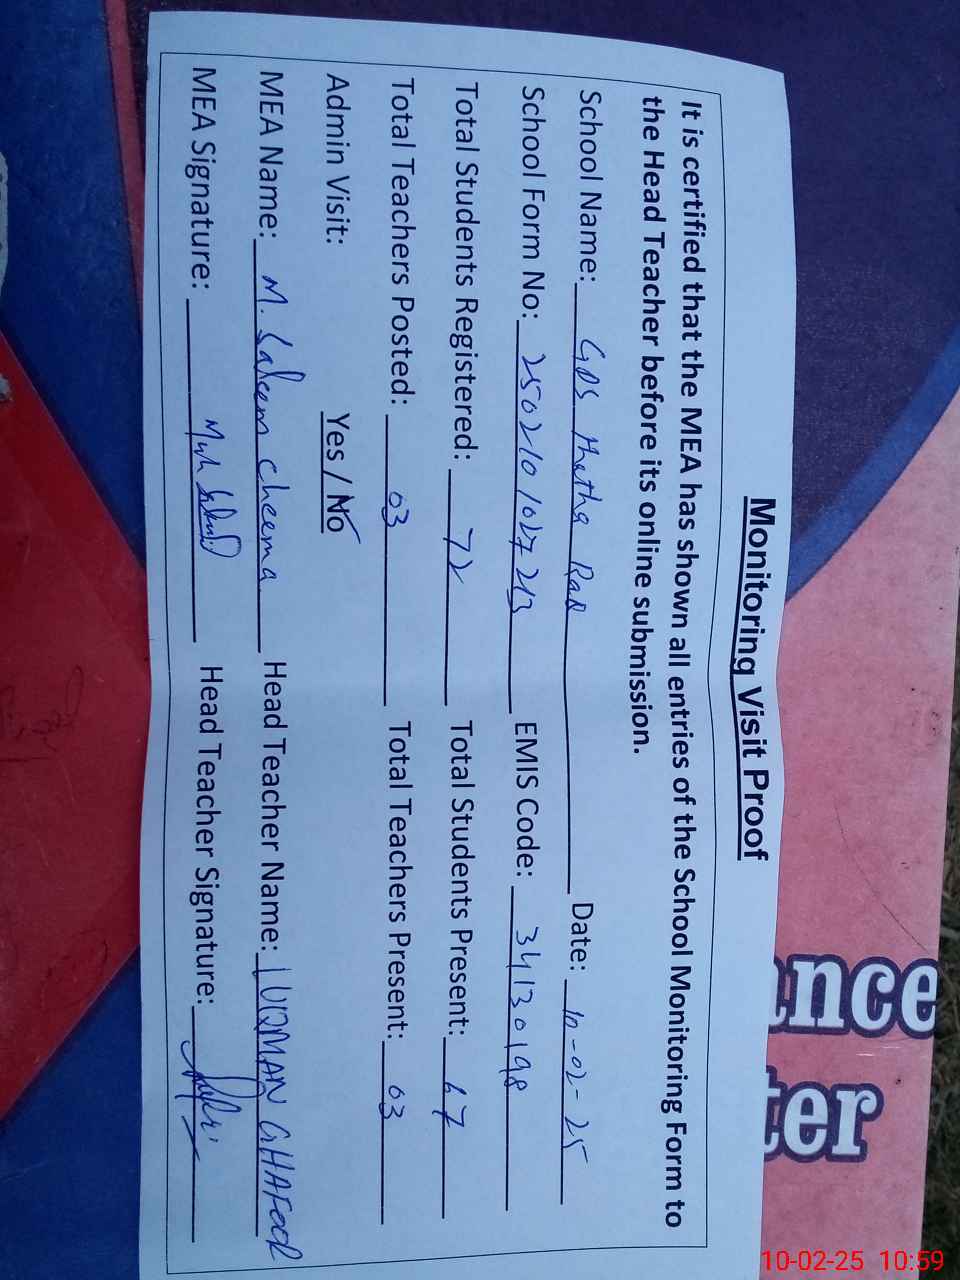 Monitoring Visit Proof
It is certified that the MEA has shown all entries of the School Monitoring Form to
the Head Teacher before its online submission.
School Name: GPS Thatha Rad Date: 10-02-25
School Form No: 2502101027213 EMIS Code: 34130198
Total Students Registered: 72 Total Students Present: 67
Total Teachers Posted: 03 Total Teachers Present: 03
Admin Visit: Yes / No
MEA Name: M. Saleem Cheema Head Teacher Name: LUQMAN GHAFOOR
MEA Signature: Head Teacher Signature:
nce
ter
10-02-25 10:59